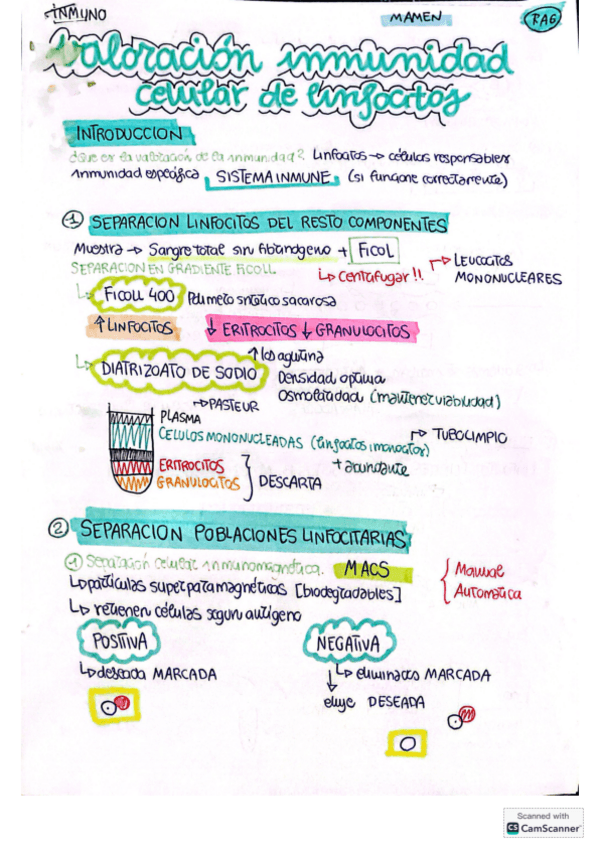 INMUNO
MAMEN
RA6
Valoración inmunidad
celular de linfocitos
INTRODUCCION
¿Que es la valoración de la inmunidad? Linfocitos → células responsables
inmunidad específica SISTEMA INMUNE (si funcione correctamente)
① SEPARACION LINFOCITOS DEL RESTO COMPONENTES
Muestra → Sangre total sin fibrinógeno + FICOL
SEPARACION EN GRADIENTE FICOLL.
↳ Centrifugar!!
→ LEUCOCITOS
MONONUCLEARES
↳ FICOLL 400 Polimero sintetico sacarosa
↑ LINFOCITOS ↓ ERITROCITOS ↓ GRANULOCITOS
↳ DIATRIZOATO DE SODIO
↑ los aglutina
Densidad optima
Osmolaridad (mantener viabilidad)
→ PASTEUR
PLASMA
CELULOS MONONUCLEADAS (linfocitos monocitos)
→ TUBO LIMPIO
+ abundante
ERITROCITOS
GRANULOCITOS
DESCARTA
② SEPARACION POBLACIONES LINFOCITARIAS
① Separación celular inmunomagnética. MACS
Manual
Automatica
↳ partículas superparamagnéticos [biodegradables]
↳ retienen células segun antígeno
POSITIVA
NEGATIVA
↳ deseada MARCADA
↳ eliminados MARCADA
↓
eluye DESEADA
Scanned with
CS CamScanner